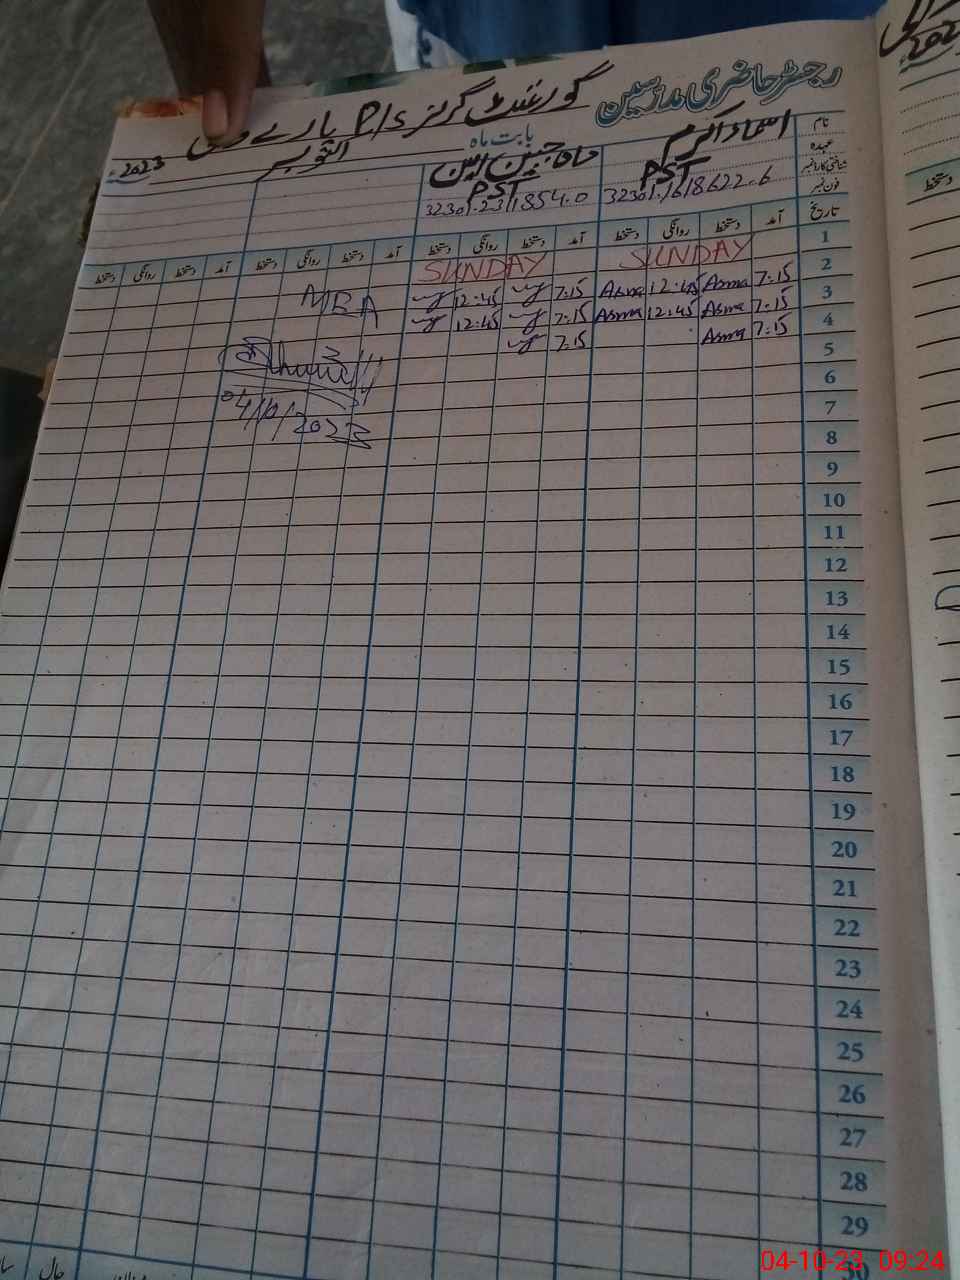 رجسٹر حاضری مدرسین
گورنمنٹ گرلز P/s
بابت ماہ اکتوبر 2023ء
نام اسماء اکرم
عہدہ PST PST
شناختی کارڈ نمبر
فون نمبر
تاریخ آمد دستخط روانگی دستخط آمد دستخط روانگی دستخط آمد دستخط روانگی دستخط آمد دستخط روانگی دستخط
1 SUNDAY SUNDAY
2 7:15 Asma 12:45 Asma 7:15 12:45
3 7:15 Asma 12:45 Asma 7:15 12:45
4 7:15 Asma 7:15
5
6
7
8
9
10
11
12
13
14
15
16
17
18
19
20
21
22
23
24
25
26
27
28
29
MBA
04/10/2023
دستخط
04-10-23 09:24